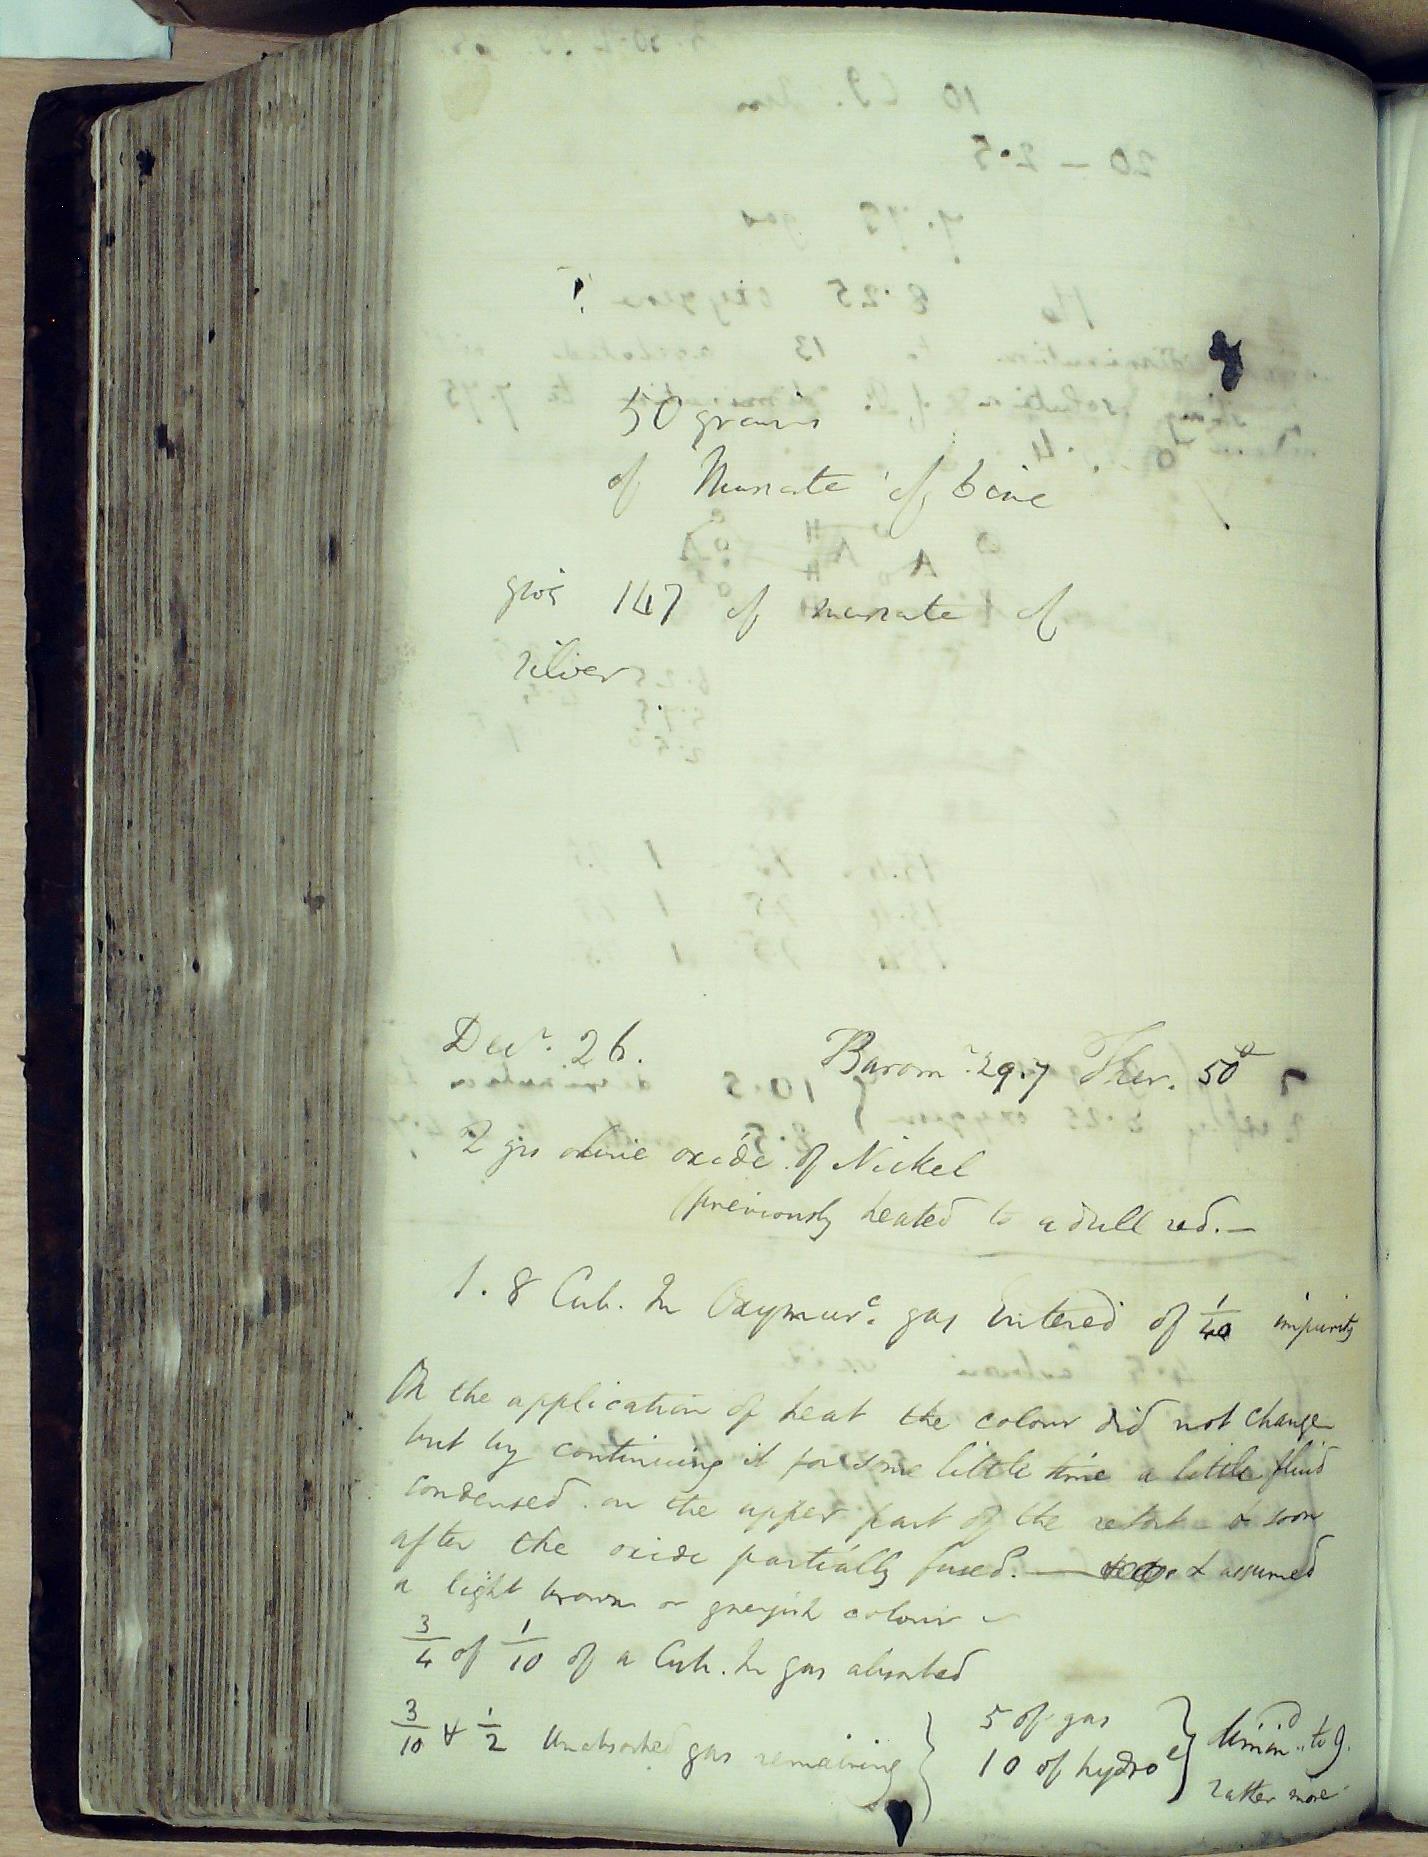 50 grains
of Muriate of lime
give 147 of muriate of
silver
Decr. 26. Baromr. 29.7 Ther. 50°
2 grs olive oxide of Nickel
previously heated to a dull red. —
1.8 Cub. In Oxymurc. gas entered of 1/40 impurity
On the application of heat the colour did not change
but by continuing it for some little time a little fluid
condensed on the upper part of the retort & soon
after the oxide partially fused. — & assumed
a light brown or greyish colour –
3/4 of 1/10 of a Cub. In gas absorbed
3/10 & 1/2 Unabsorbed gas remaining } 5 of gas
10 of hydroe } dimind. to 9.
rather more